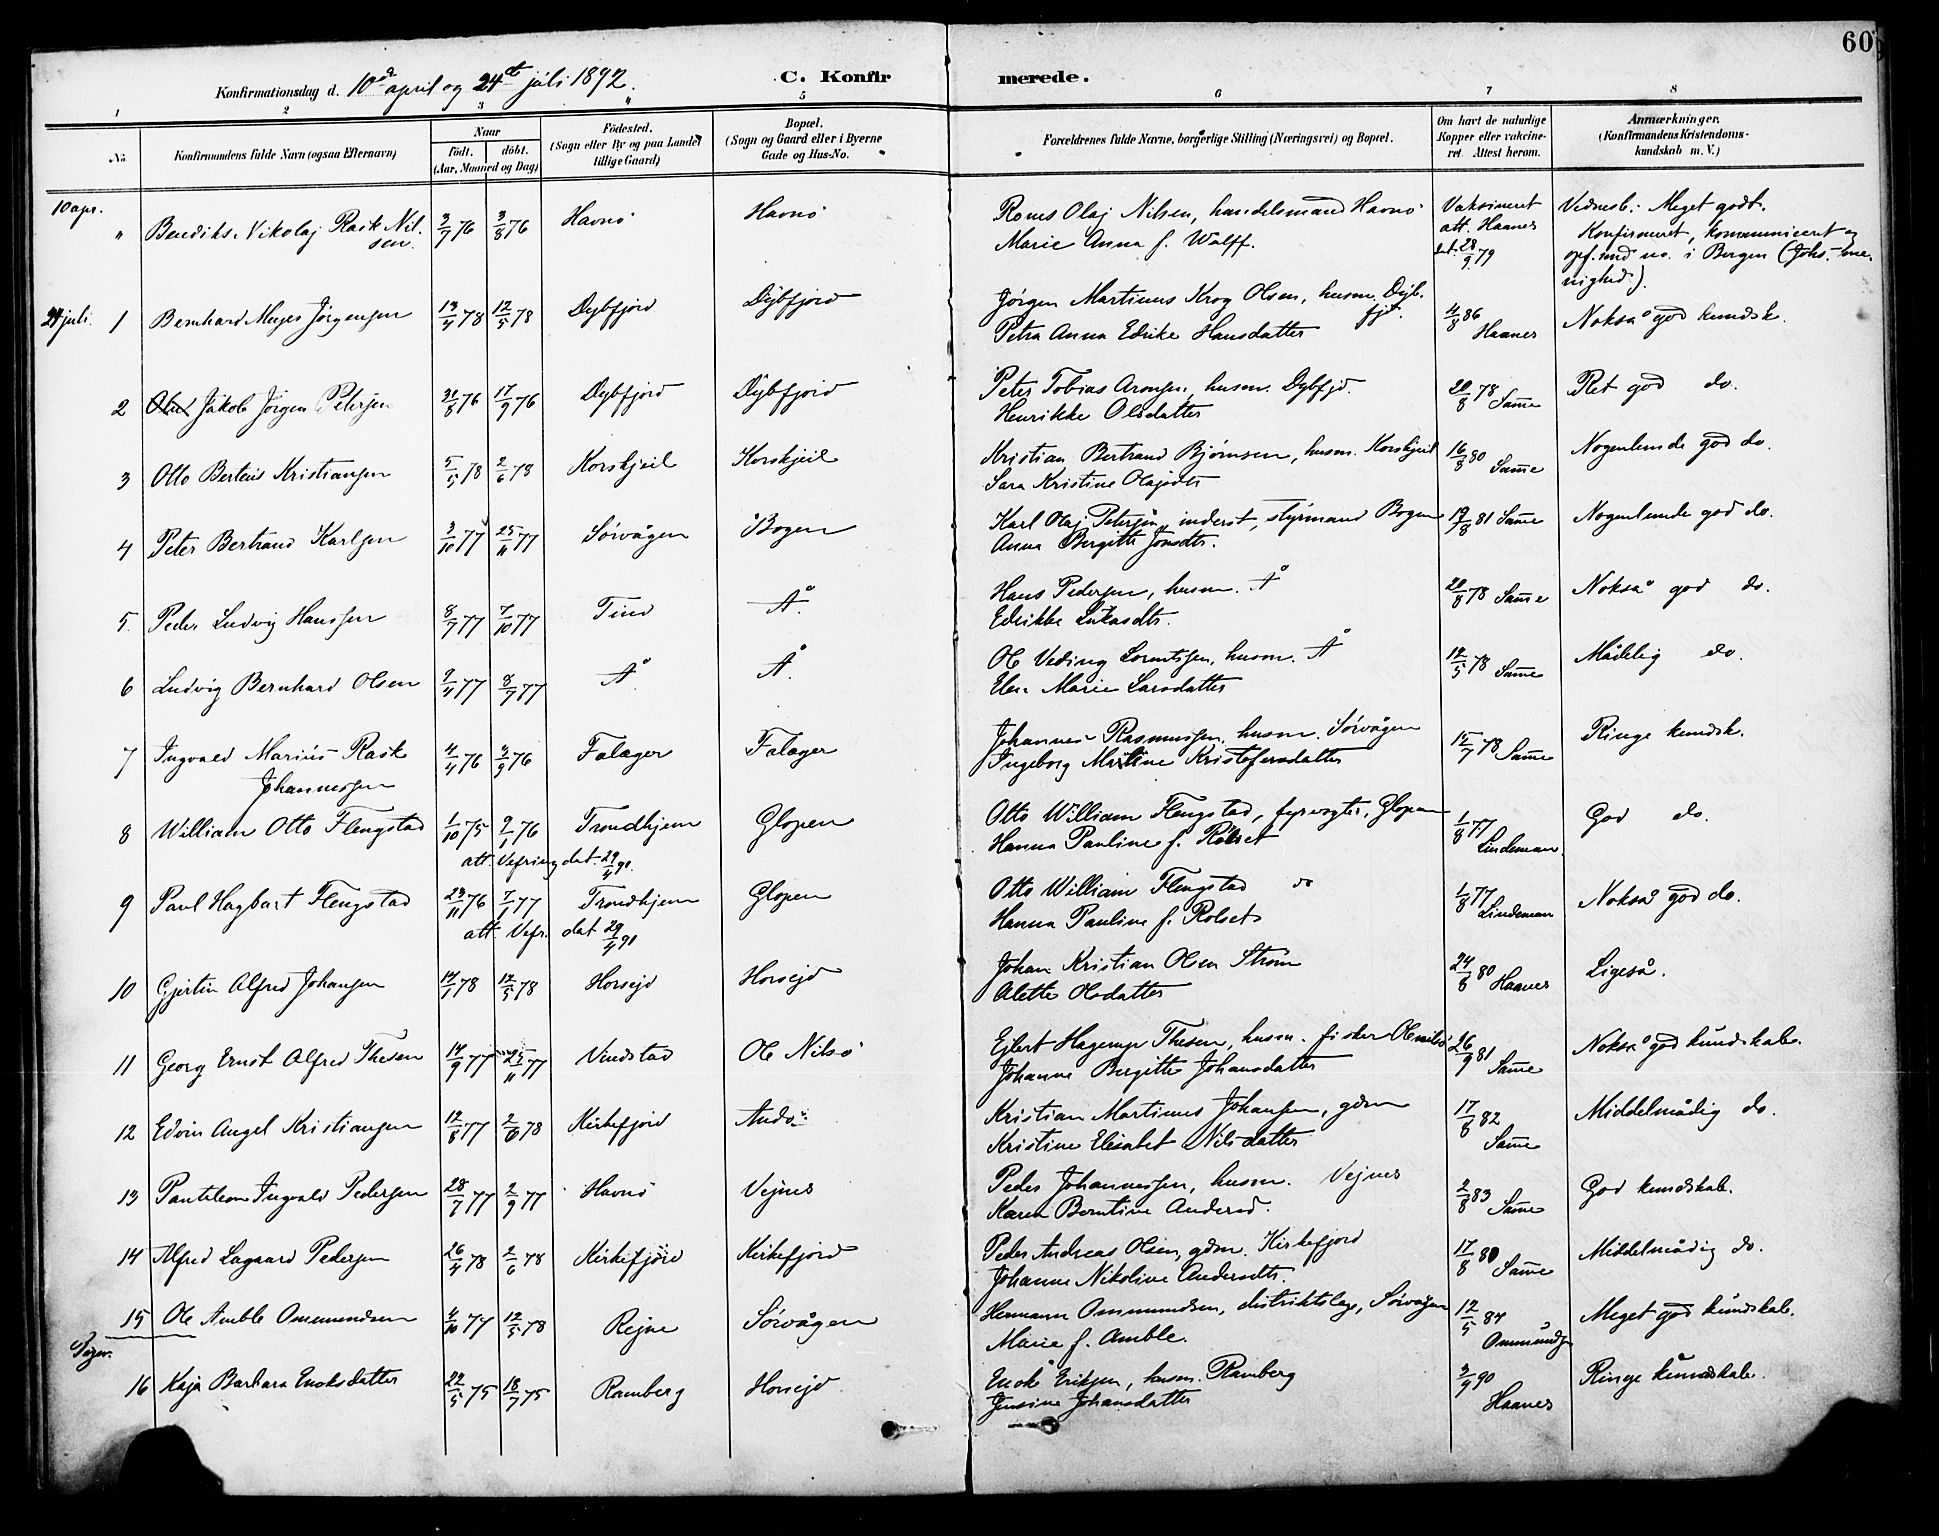 60
Konfirmationsdag d. 10de april og 24de juli 1892.
C. Konfirmerede.
1 2 3 4 5 6 7 8
No.
Konfirmandens fulde Navn (ogsaa Efternavn)
Naar
födt. döbt.
(Aar, Maaned og Dag)
Födested.
(Sogn eller By og paa Landet
tillige Gaard)
Bopæl.
(Sogn og Gaard eller i Byerne
Gade og Hus-No.
Forældrenes fulde Navne, borgerlige Stilling (Næringsvei) og Bopæl.
Om havt de naturlige
Kopper eller vakcine-
ret. Attest herom.
Anmærkninger.
(Konfirmandens Kristendoms-
kundskab m. V.)
10 apr. " Bendiks Nikolaj Rask Nil-
sen. 3/7 76 3/8 76 Havnö Havnö Rones Olaj Nilsen, handelsmand Havnö
Marie Anna f. Wolff. Vaksineret
att. Haanes
dat. 28/9 79 Vidnesb.: Meget godt.
Konfirmeret, kommuniceret og
opf. und no. i Bergen (Johs.-me-
nighed).
24 juli. 1 Bernhard Meyer Jørgensen 13/4 78 12/5 78 Dybfjord Dybfjord Jørgen Martinus Krog Olsen, husm. Dyb-
fjd.
Petra Anna Edrike Hansdatter 4/8 86
Haanes Nokså god kundsk.
2 Jakob Jörgen Petersen 31/8 76 17/9 76 Dybfjord Dybfjord Peter Tobias Aronsen, husm. Dybfjd.
Henrikke Olsdatter 20/8 78 Samme Ret god do.
3 Otto Berteus Kristiansen 5/5 78 2/6 78 Korskjeil Korskjeil Kristian Bertrand Bjørnsen, husm. Korskjeil
Sara Kristine Olajsdtr 16/8 80 Samme Nogenlunde god do.
4 Peter Bertrand Karlsen 3/10 77 25/11 77 Sörvågen Bogen Karl Olaj Petersen, inderst, styrmand Bogen
Anna Bergitte Jonsdtr. 19/8 81 Samme Nogenlunde god do.
5. Peder Ludvig Hanssen 8/7 77 7/10 77 Tind Å. Hans Pedersen, husm. Å
Edrikke Lukasdtr. 20/8 78 Samme Nokså god do.
6 Ludvig Bernhard Olsen 2/4 77 8/7 77 Å Å. Ole Veding Lorentssen, husm. Å
Elen Marie Larsdatter 12/5 78 Samme Mådelig do.
7 Ingvald Marius Rask
Johannessen 4/4 76 3/9 76 Falager Falager Johannes Rasmussen, husm. Sörvågen
Ingeborg Martine Kristofersdatter 15/7 78 Samme Ringe kundsk.
8 William Otto Flengstad 1/10 75 9/1 76 Trondhjem Glopen Otto William Flengstad, fyrvogter, Glopen
Hanna Pauline f. Rolset 1/8 77
Lindeman God do.
att. Vefring dat. 29/4 90.
9 Paul Hagbart Flengstad 23/11 76 7/1 77 Trondhjem Glopen Otto William Flengstad do
Hanna Pauline f. Rolset 1/8 77
Lindeman Nokså god do.
att. Vefr. dat 29/4 90
10 Gjertin Alfred Johansen 14/1 78 12/5 78 Horsejd Horsejd Johan Kristian Olsen Ström
Alette Olsdatter 24/8 80 Haanes Ligeså.
11 Georg Ernst Alfred Thesen 14/9 77 25/11 77 Vindstad Ole Nilsö Ejlert Hagerup Thesen, husm. fisker Olenilsö
Johanne Bergitte Johansdatter 26/9 81
Samme Nokså god kundskab.
12 Edvin Angel Kristiansen 12/8 77 2/6 78 Kirkefjord Andö Kristian Martinus Johansen, gdm
Kristine Elisabet Nilsdatter 17/8 82
Samme Middelmådig do.
13 Panteleon Ingvald Pedersen 28/7 77 2/9 77 Havnö Vejnes Peder Johannessen, husm. Vejnes
Karen Berntine Andersd. 2/8 83
Samme God kundskab.
14 Alfred Lagaard Pedersen 26/4 78 2/6 78 Kirkefjord Kirkefjord Peder Andreas Olsen, gdm. Kirkefjord
Johanne Nikoline Andersdtr. 17/8 80
Samme Middelmådig do.
15 Ole Amble Ommundsen 4/10 77 12/5 78 Rejne Sörvågen Hermann Ommundsen, distriktslæge, Sörvågen
Marie f. Amble. 12/5 84
Ommundsen Meget god kundskab.
Piger.
16 Kaja Barbara Enoksdatter 22/5 75 18/7 75 Ramberg Horsejd Enok Eriksen, husm. Ramberg
Jensine Johansdatter 3/9 90
Haanes Ringe kundskab.